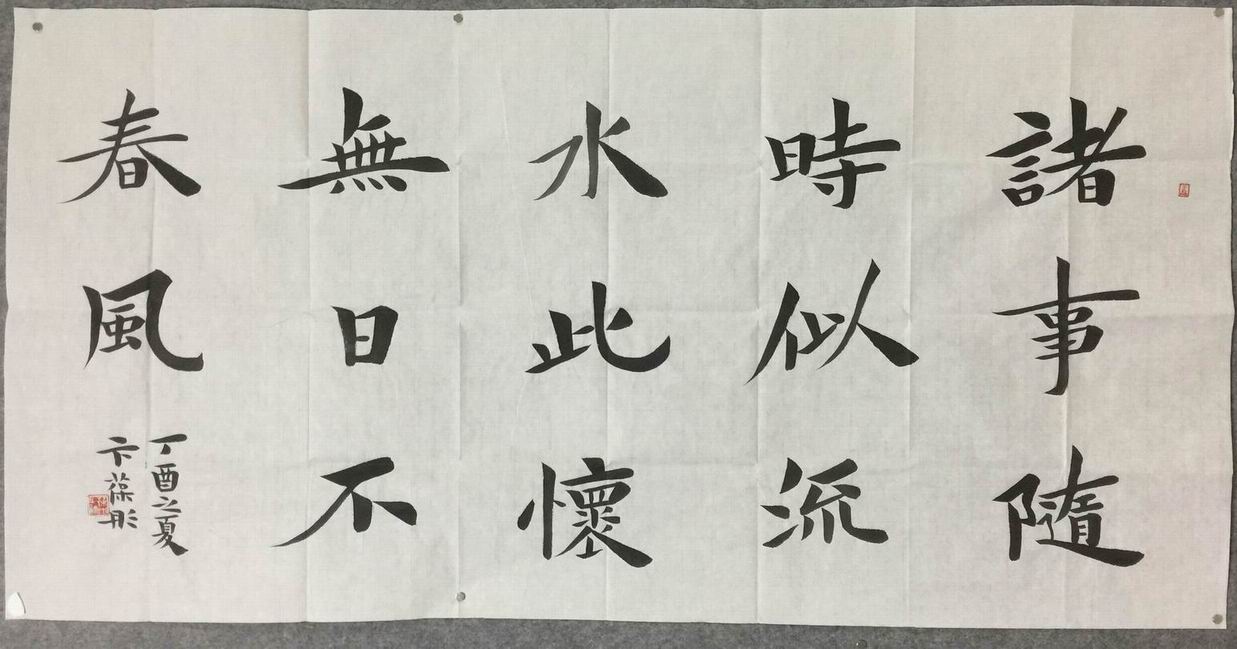 諸事隨
時似流
水此懷
無日不
春風
丁酉之夏
卞葆彤